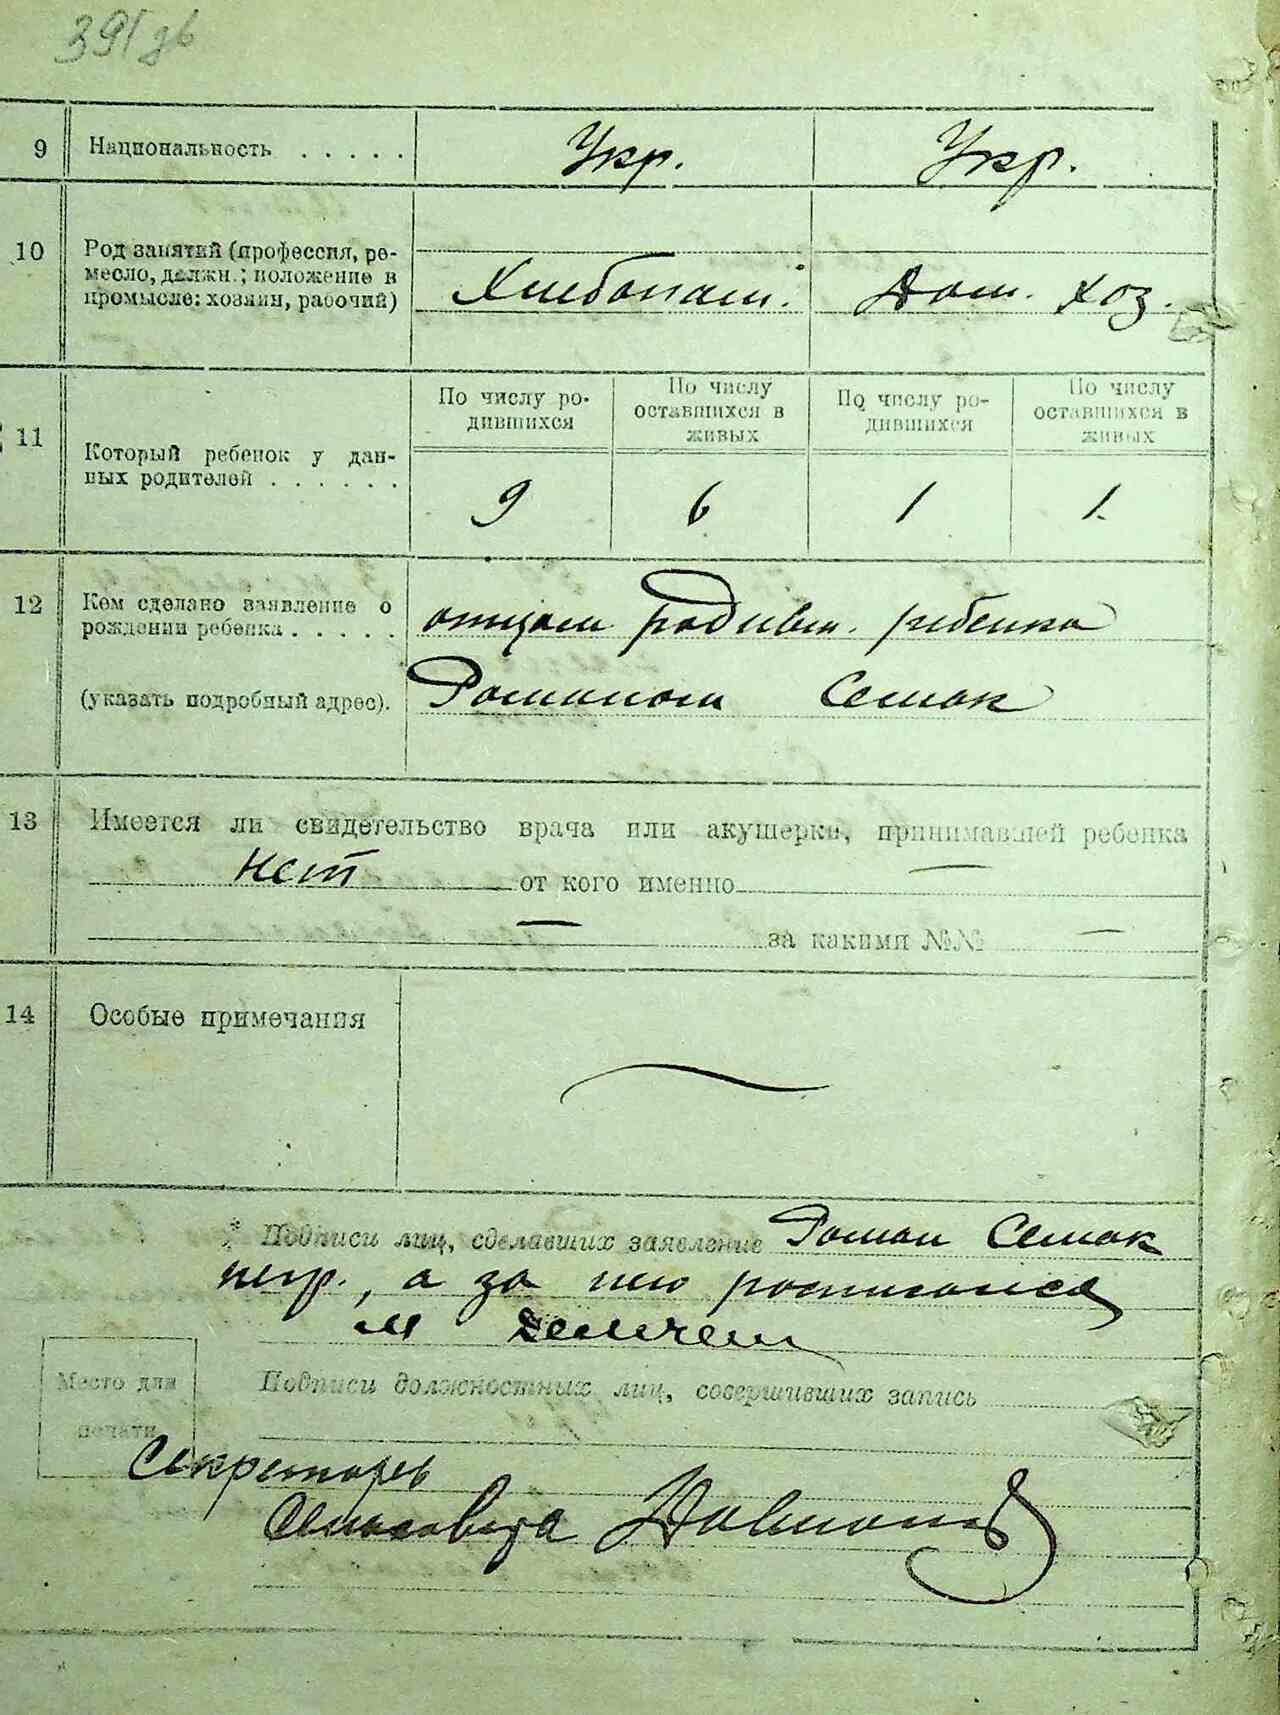 391 зв
9 Национальность . . . . . Укр. Укр.
10 Род занятий (профессия, ре-
месло, должн.; положение в
промысле: хозяин, рабочий) Хлебопаш. Дом. хоз.
11 Который ребенок у дан-
ных родителей . . . . . .
По числу ро-
дившихся
По числу
оставшихся в
живых
По числу ро-
дившихся
По числу
оставшихся в
живых
9 6 1 1.
12 Кем сделано заявление о
рождении ребенка . . . . . отцом родивш. ребенка
(указать подробный адрес). Романом Семак
13 Имеется ли свидетельство врача или акушерки, принимавшей ребенка
нет от кого именно —
— за какими №№ —
14 Особые примечания
* Подписи лиц, сделавших заявление Роман Семак
негр., а за него росписался
М
Место для
печати
Подписи должностных лиц, совершивших запись
Секретарь
Сельсовета